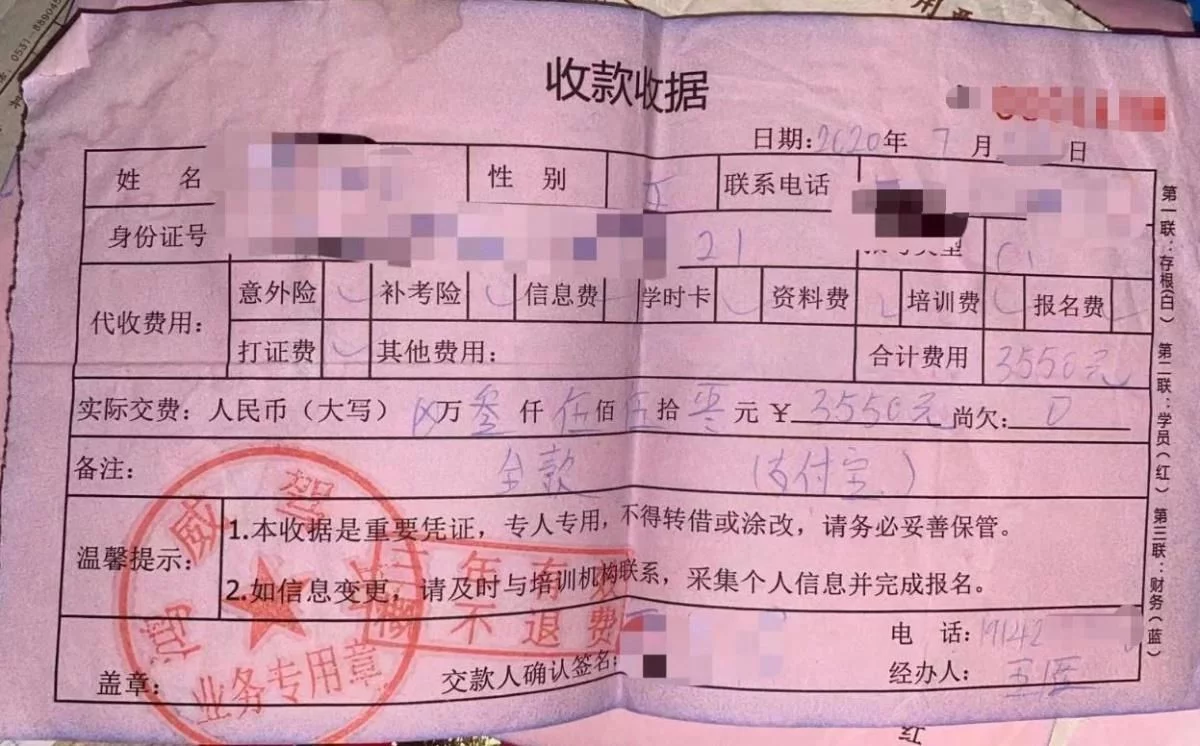 收款收据
日期:2020年 7月 日
姓 名 性 别 联系电话
身份证号 21 C1
代收费用: 意外险 补考险 信息费 学时卡 资料费 培训费 报名费
打证费 其他费用: 合计费用 3550元
实际交费: 人民币(大写) 万 叁 仟 伍 佰 伍 拾 零 元 ¥ 3550元 尚欠: 0
备注: 全款 (支付宝)
温馨提示:
1.本收据是重要凭证，专人专用,不得转借或涂改，请务必妥善保管。
2.如信息变更，请及时与培训机构联系，采集个人信息并完成报名。
盖章: 交款人确认签名:
电 话: 19142
经办人:
第一联:存根(白) 第二联:学员(红) 第三联:财务(蓝)
鸿威驾
业务专用章
三年有效
概不退费
红